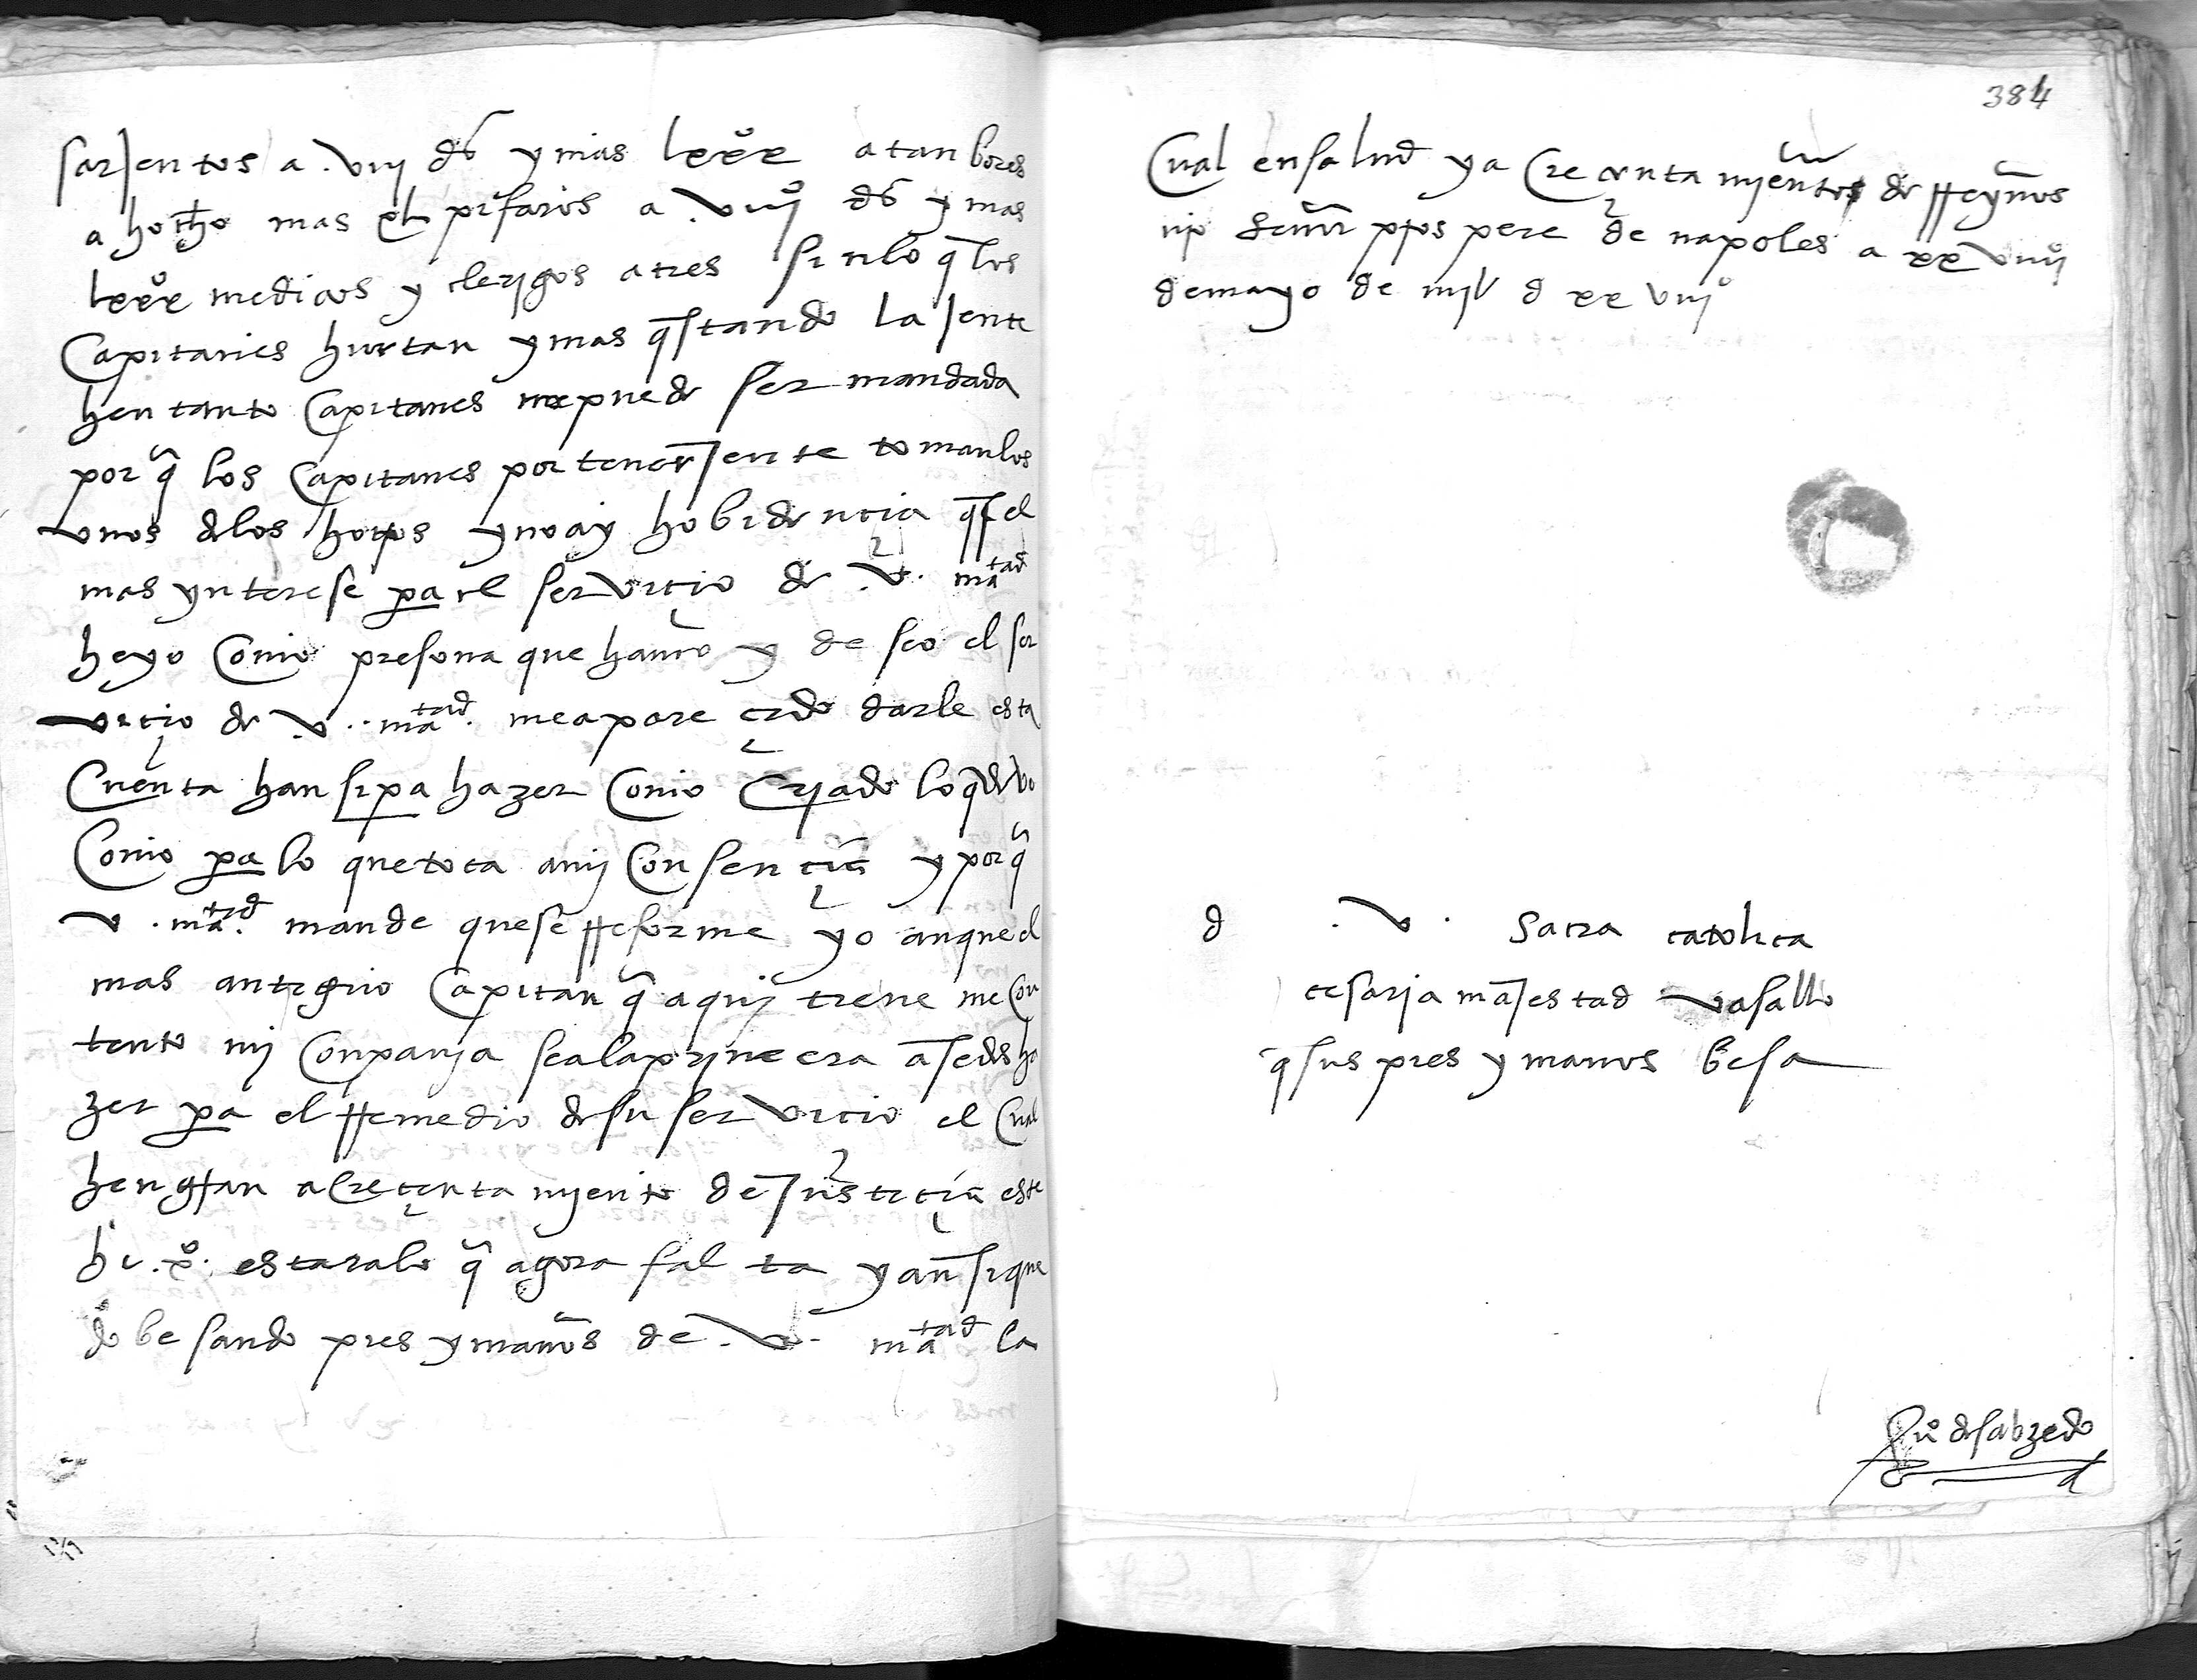 sarjentos a . viij dos y mas lxxx atanbores
a hocho mas xl pifaros a . viijº dos y mas
lxxx medicos y clerygos a tres sin lo q los
Capitanes hurtan y mas qstando la jente
hen tanto Capitanes no puede ser mandada
por q los Capitanes por tener jente toman los
vnos de los hotros y no ay hobidencia qs el
mas ynterese pa el serviçio de . v . matad
he yo Como presona que hamo y deseo el ser
viçio de . v . matad . me a pareçido darle esta
Cuenta hansi pa hazer Como Cryado lo q debo
Como pa lo que toca a mi Consençia y por q
v . matad . mande que se rreforme yo aunque el
mas antiguo Capitan q aqui tiene me Con
tento mi Conpanja sea la prymera a se desha
zer pa el rremedio de su servicio el Cual
hen gran acreçentamyento de justiçia este
he . xº . estara lo q agora falta y ansi que
do besando pies y manos de . v . matad la
384
Cual en salud y acrecentamyento de rreynos
de napoles a xx viijº
de mayo de mil d xx viijº
d . v . sacra catolica
cesarja majestad vasallo
q sus pies y manos besa
de salzedo